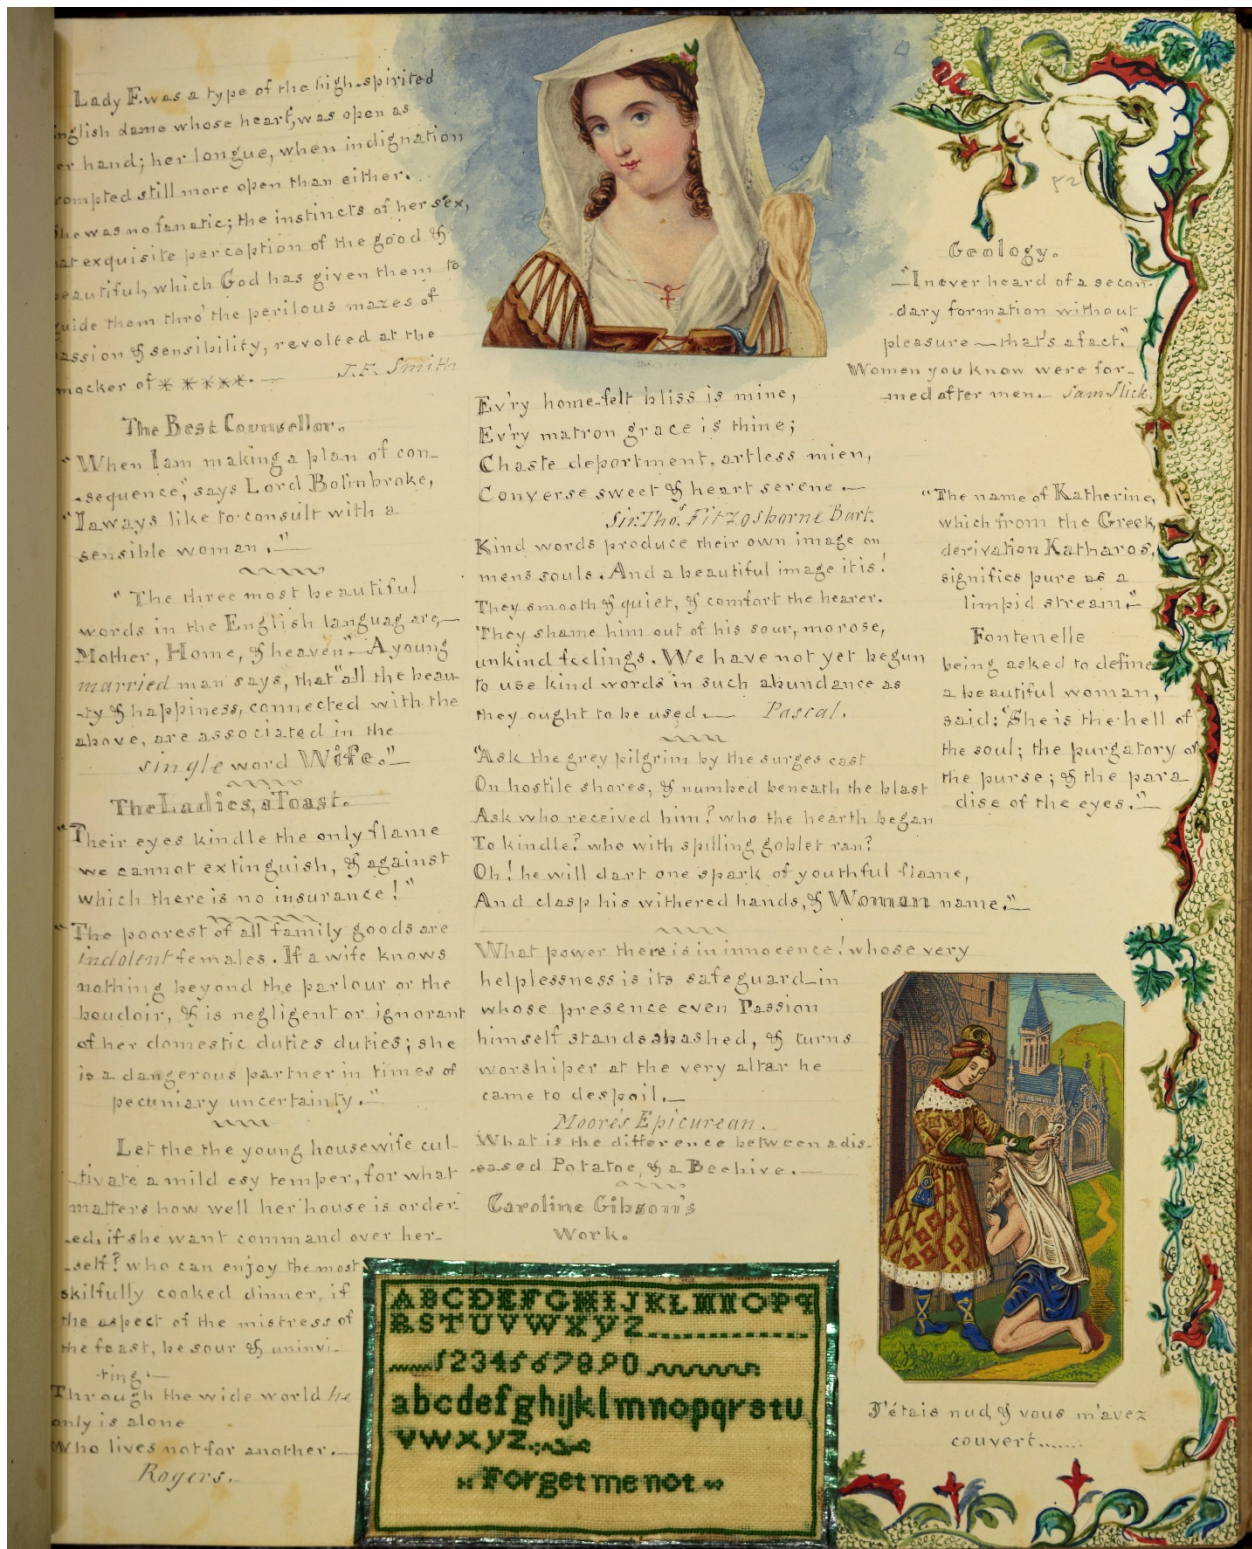 Lady F. was a type of the high-spirited
nglish dame whose heart, was open as
er hand; her longue, when indignation
rompted still more open than either.
he was no fanatic; the instincts of her sex,
at exquisite perception of the good &
eautiful, which God has given them to
uide them thro' the perilous mazes of
assion & sensibility, revolted at the
mocker of * ****. —
J.F. Smith
The Best Counsellor.
"When I am making a plan of con-
-sequence," says Lord Bolinbroke,
"I aways like to consult with a
sensible woman."
"The three most beautiful
words in the English languag are,—
Mother, Home, & heaven". A young
married man says, that "all the beau-
-ty & happiness, connected with the
above, are associated in the
single word Wife."—
The Ladies, a Toast.
"Their eyes kindle the only flame
we cannot extinguish, & against
which there is no insurance!"
"The poorest of all family goods are
indolent females. If a wife knows
nothing beyond the parlour or the
boudoir, & is negligent or ignorant
of her domestic duties duties; she
is a dangerous partner in times of
pecuniary uncertainty."
Let the the young housewife cul-
-tivate a mild esy temper, for what
matters how well her house is order-
-ed, if she want command over her-
-self? who can enjoy the most
skilfully cooked dinner, if
the aspect of the mistress of
the feast, be sour & uninvi-
-ting.—
Through the wide world he
only is alone
Who lives not for another.—
Rogers.
Ev'ry home-felt bliss is mine,
Ev'ry matron grace is thine;
Chaste deportment, artless mien,
Converse sweet & heart serene.—
Sir Thos. Fitzosborne Bart.
Kind words produce their own image on
mens souls. And a beautiful image it is!
They smooth & quiet, & comfort the hearer.
They shame him out of his sour, morose,
unkind feelings. We have not yet begun
to use kind words in such abundance as
they ought to be used.— Pascal.
"Ask the grey pilgrim by the surges cast
On hostile shores, & numbed beneath the blast
Ask who received him? who the hearth began
To kindle? who with spilling goblet ran?
Oh! he will dart one spark of youthful flame,
And clasp his withered hands, & Woman name."—
What power there is in innocence! whose very
helplessness is its safeguard—in
whose presence even Passion
himself stands abashed, & turns
worshiper at the very altar he
came to despoil.—
Moore's Epicurean.
What is the difference between a dis-
-eased Potatoe, & a Beehive.—
Caroline Gibson's
Work.
ABCDEFGHIJKLMNOPQ
RSTUVWXYZ
1234567890
abcdefghijklmnopqrstu
vwxyz
Forget me not
82
Geology.
"I never heard of a secon-
-dary formation without
pleasure—that's a fact."
Women you know were for-
-med after men. Sam Slick.
"The name of Katherine,
which from the Greek
derivation Katharos,
signifies pure as a
limpid stream."
Fontenelle
being asked to define
a beautiful woman,
said: "She is the hell of
the soul; the purgatory of
the purse; & the para
dise of the eyes."—
J'étais nud, & vous m'avez
couvert......